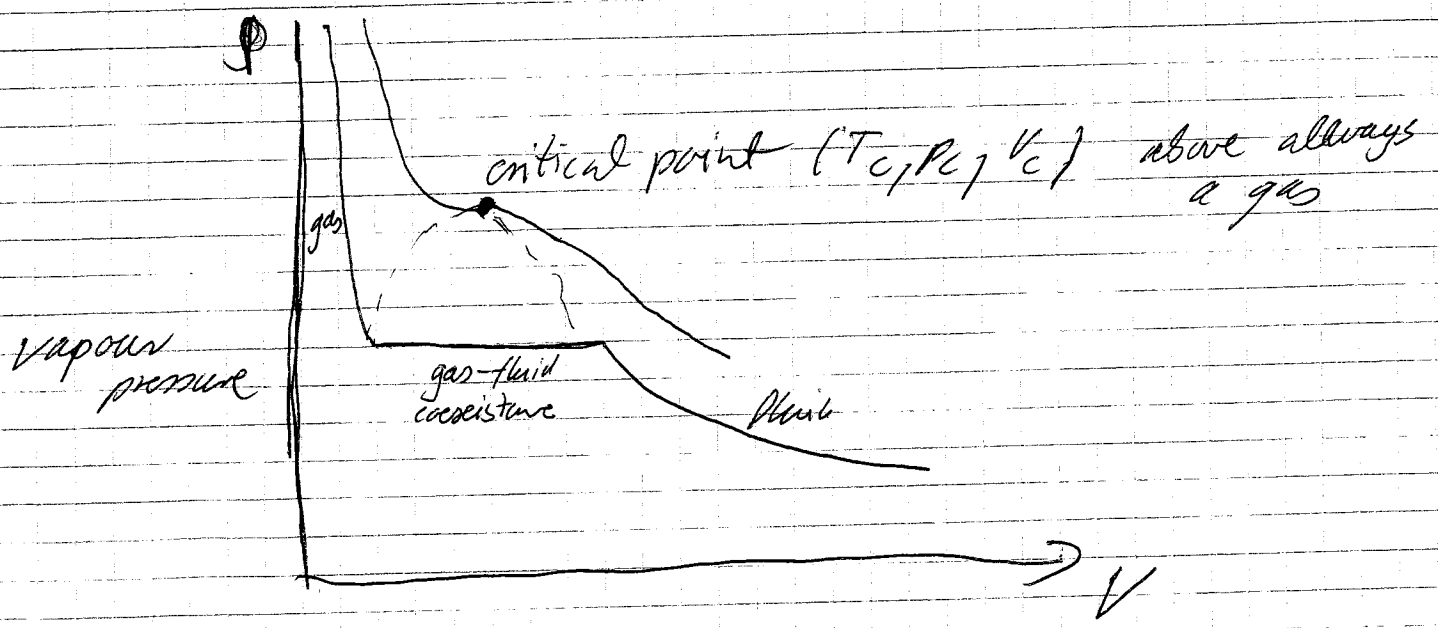 P
critical point (Tc, Pc, Vc) above allways
a gas
gas
vapour
pressure
gas-fluid
coexistence
fluid
V